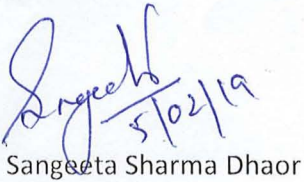 Sangeeta
5/02/19
Sangeeta Sharma Dhaor